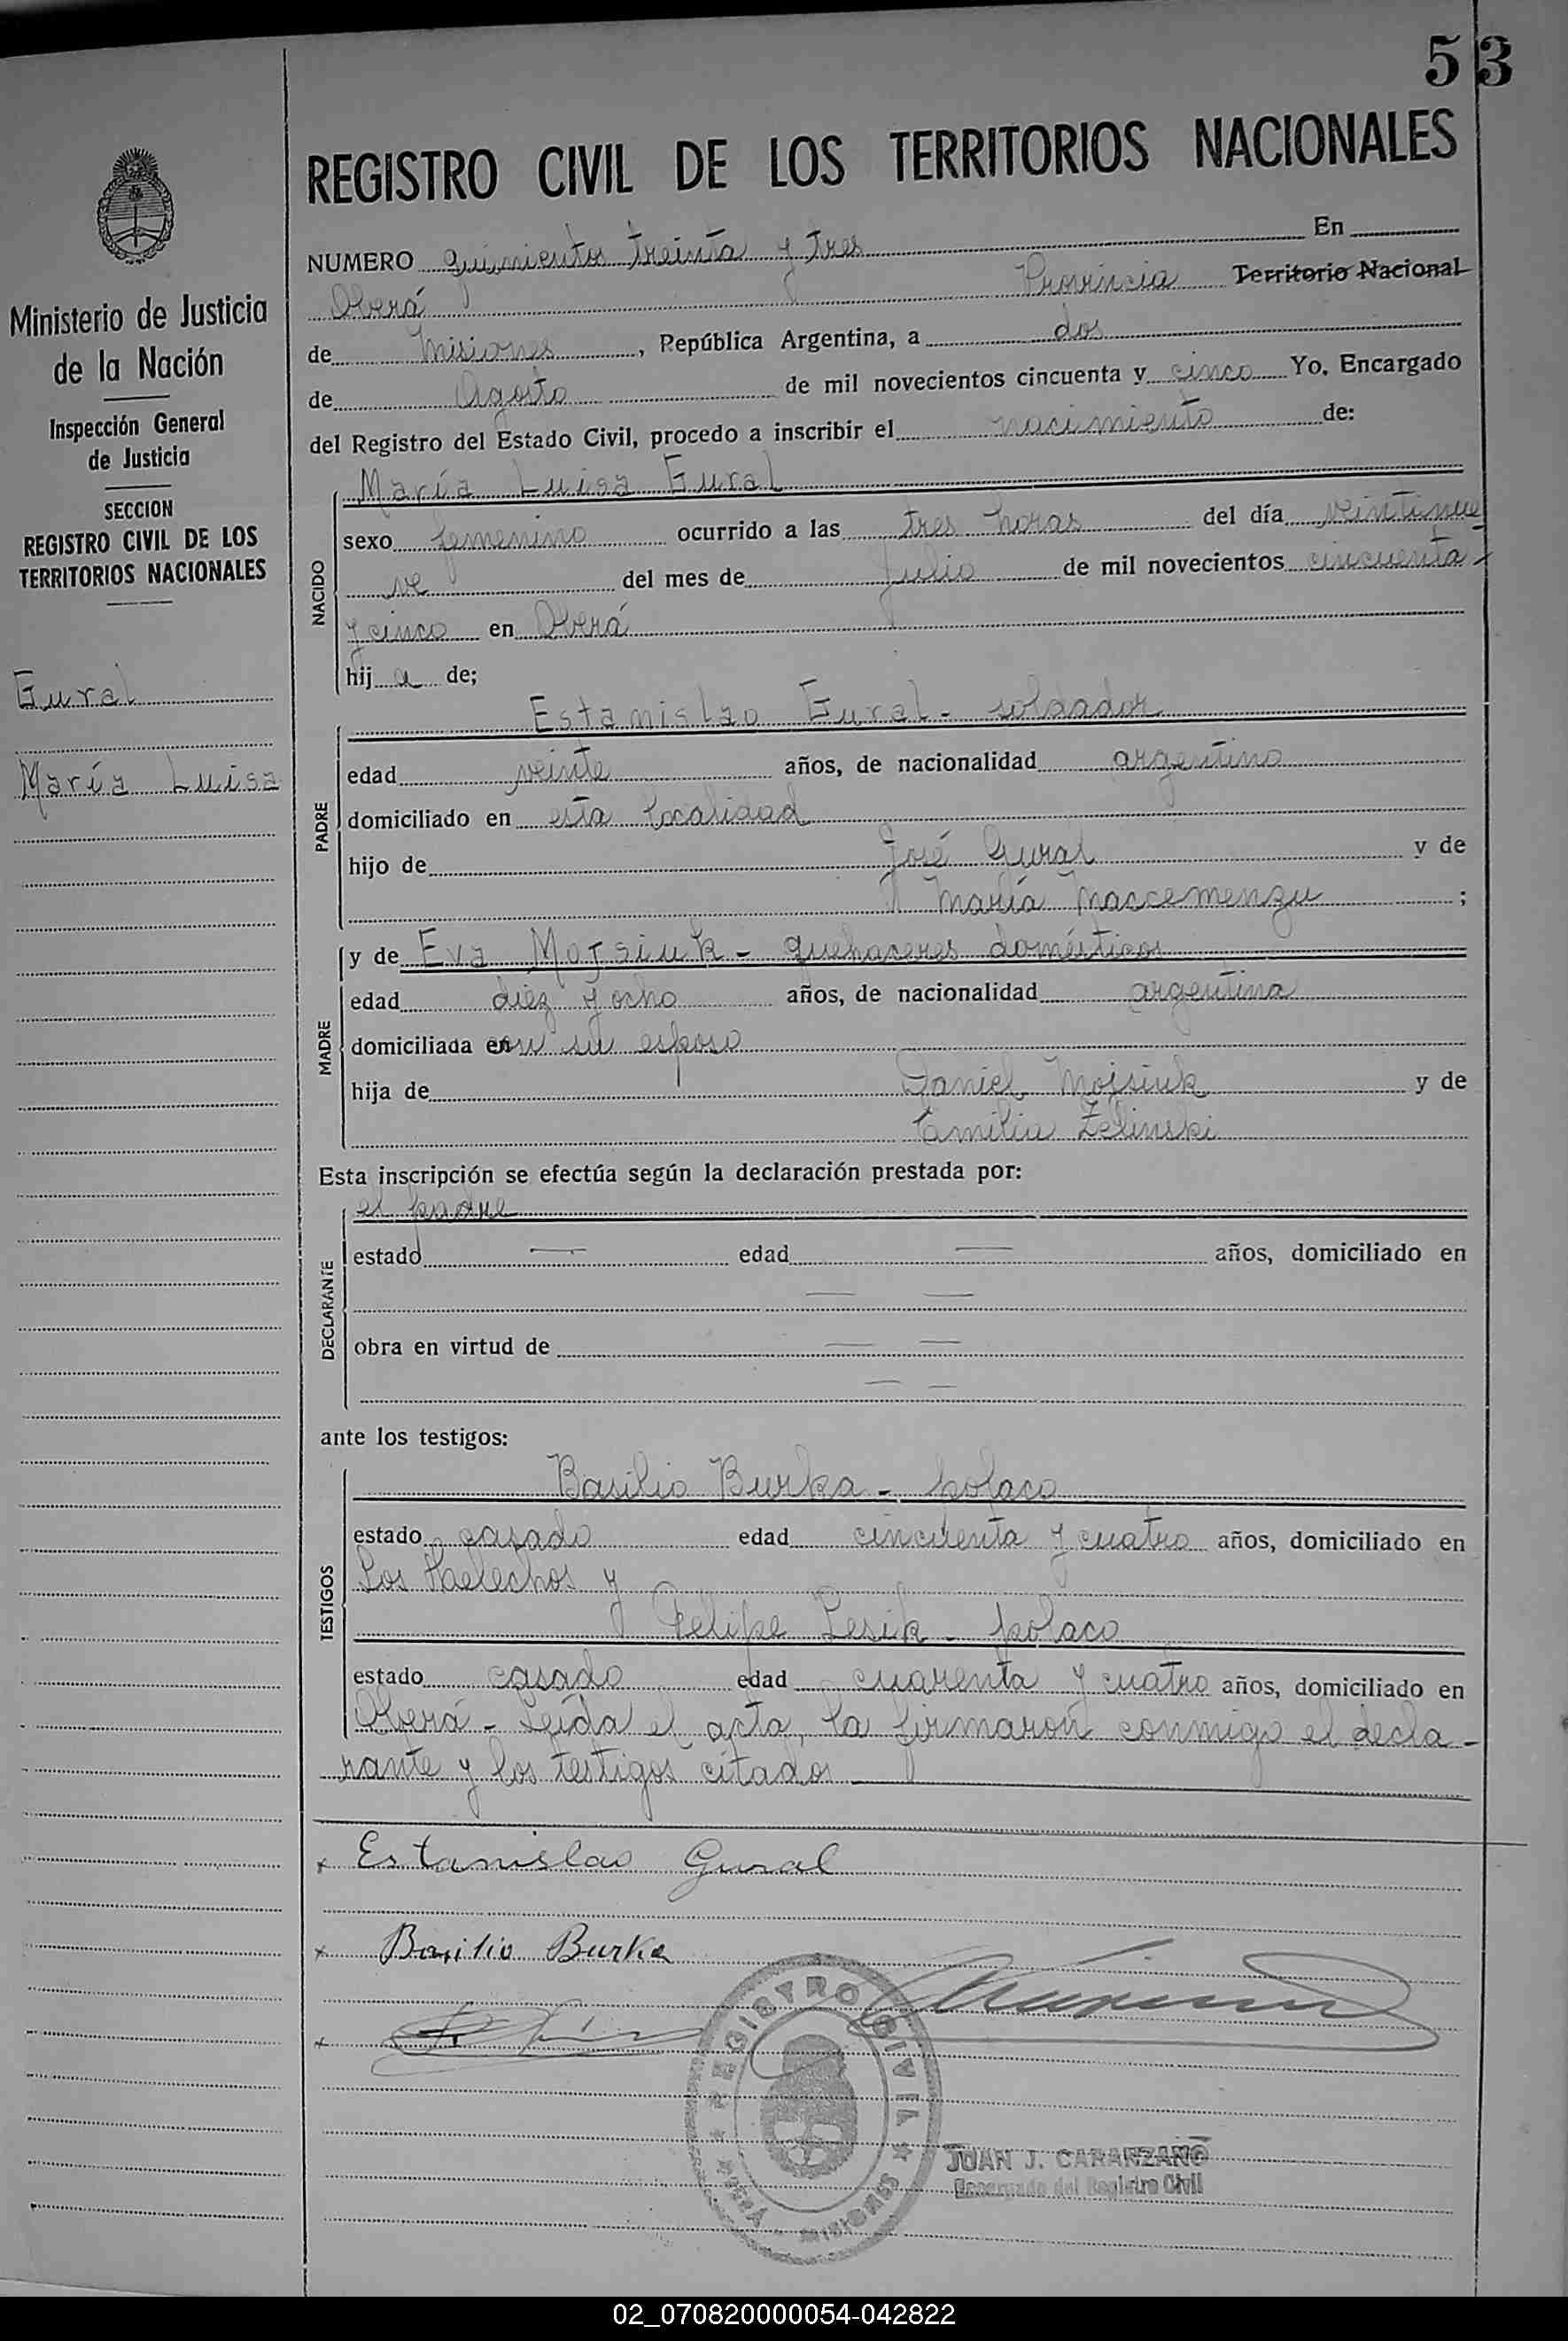 53
REGISTRO CIVIL DE LOS TERRITORIOS NACIONALES
NUMERO quinientos treinta y tres En
Oberá Provincia Territorio Nacional
de Misiones, República Argentina, a dos
de Agosto de mil novecientos cincuenta y cinco Yo, Encargado
del Registro del Estado Civil, procedo a inscribir el nacimiento de:
Ministerio de Justicia
de la Nación
Inspección General
de Justicia
SECCION
REGISTRO CIVIL DE LOS
TERRITORIOS NACIONALES
Gural
María Luisa
NACIDO
María Luisa Gural
sexo femenino ocurrido a las tres horas del día veintinue
ve del mes de Julio de mil novecientos cincuenta
y cinco en Oberá
hija de;
PADRE
Estanislao Gural - soldador
edad veinte años, de nacionalidad argentino
domiciliado en esta localidad
hijo de José Gural y de
María ;
MADRE
y de Eva Mojsiuk - quehaceres domésticos
edad diez y ocho años, de nacionalidad argentina
domiciliada en su esposo
hija de Daniel Mojsiuk y de
Emilia Zelinski
Esta inscripción se efectúa según la declaración prestada por:
DECLARANTE
el padre
estado — edad — años, domiciliado en
— —
obra en virtud de — —
— —
ante los testigos:
TESTIGOS
Basilio Burka - polaco
estado casado edad cincuenta y cuatro años, domiciliado en
Los Helechos y
Felipe Lesik - polaco
estado casado edad cuarenta y cuatro años, domiciliado en
Oberá - Leída el acta, la firmaron conmigo el decla-
rante y los testigos citados
x Estanislao Gural
x Basilio Burka
x
REGISTRO CIVIL
OBERÁ - MISIONES
JUAN J. CARANZANO
Encargado del Registro Civil
02_070820000054-042822